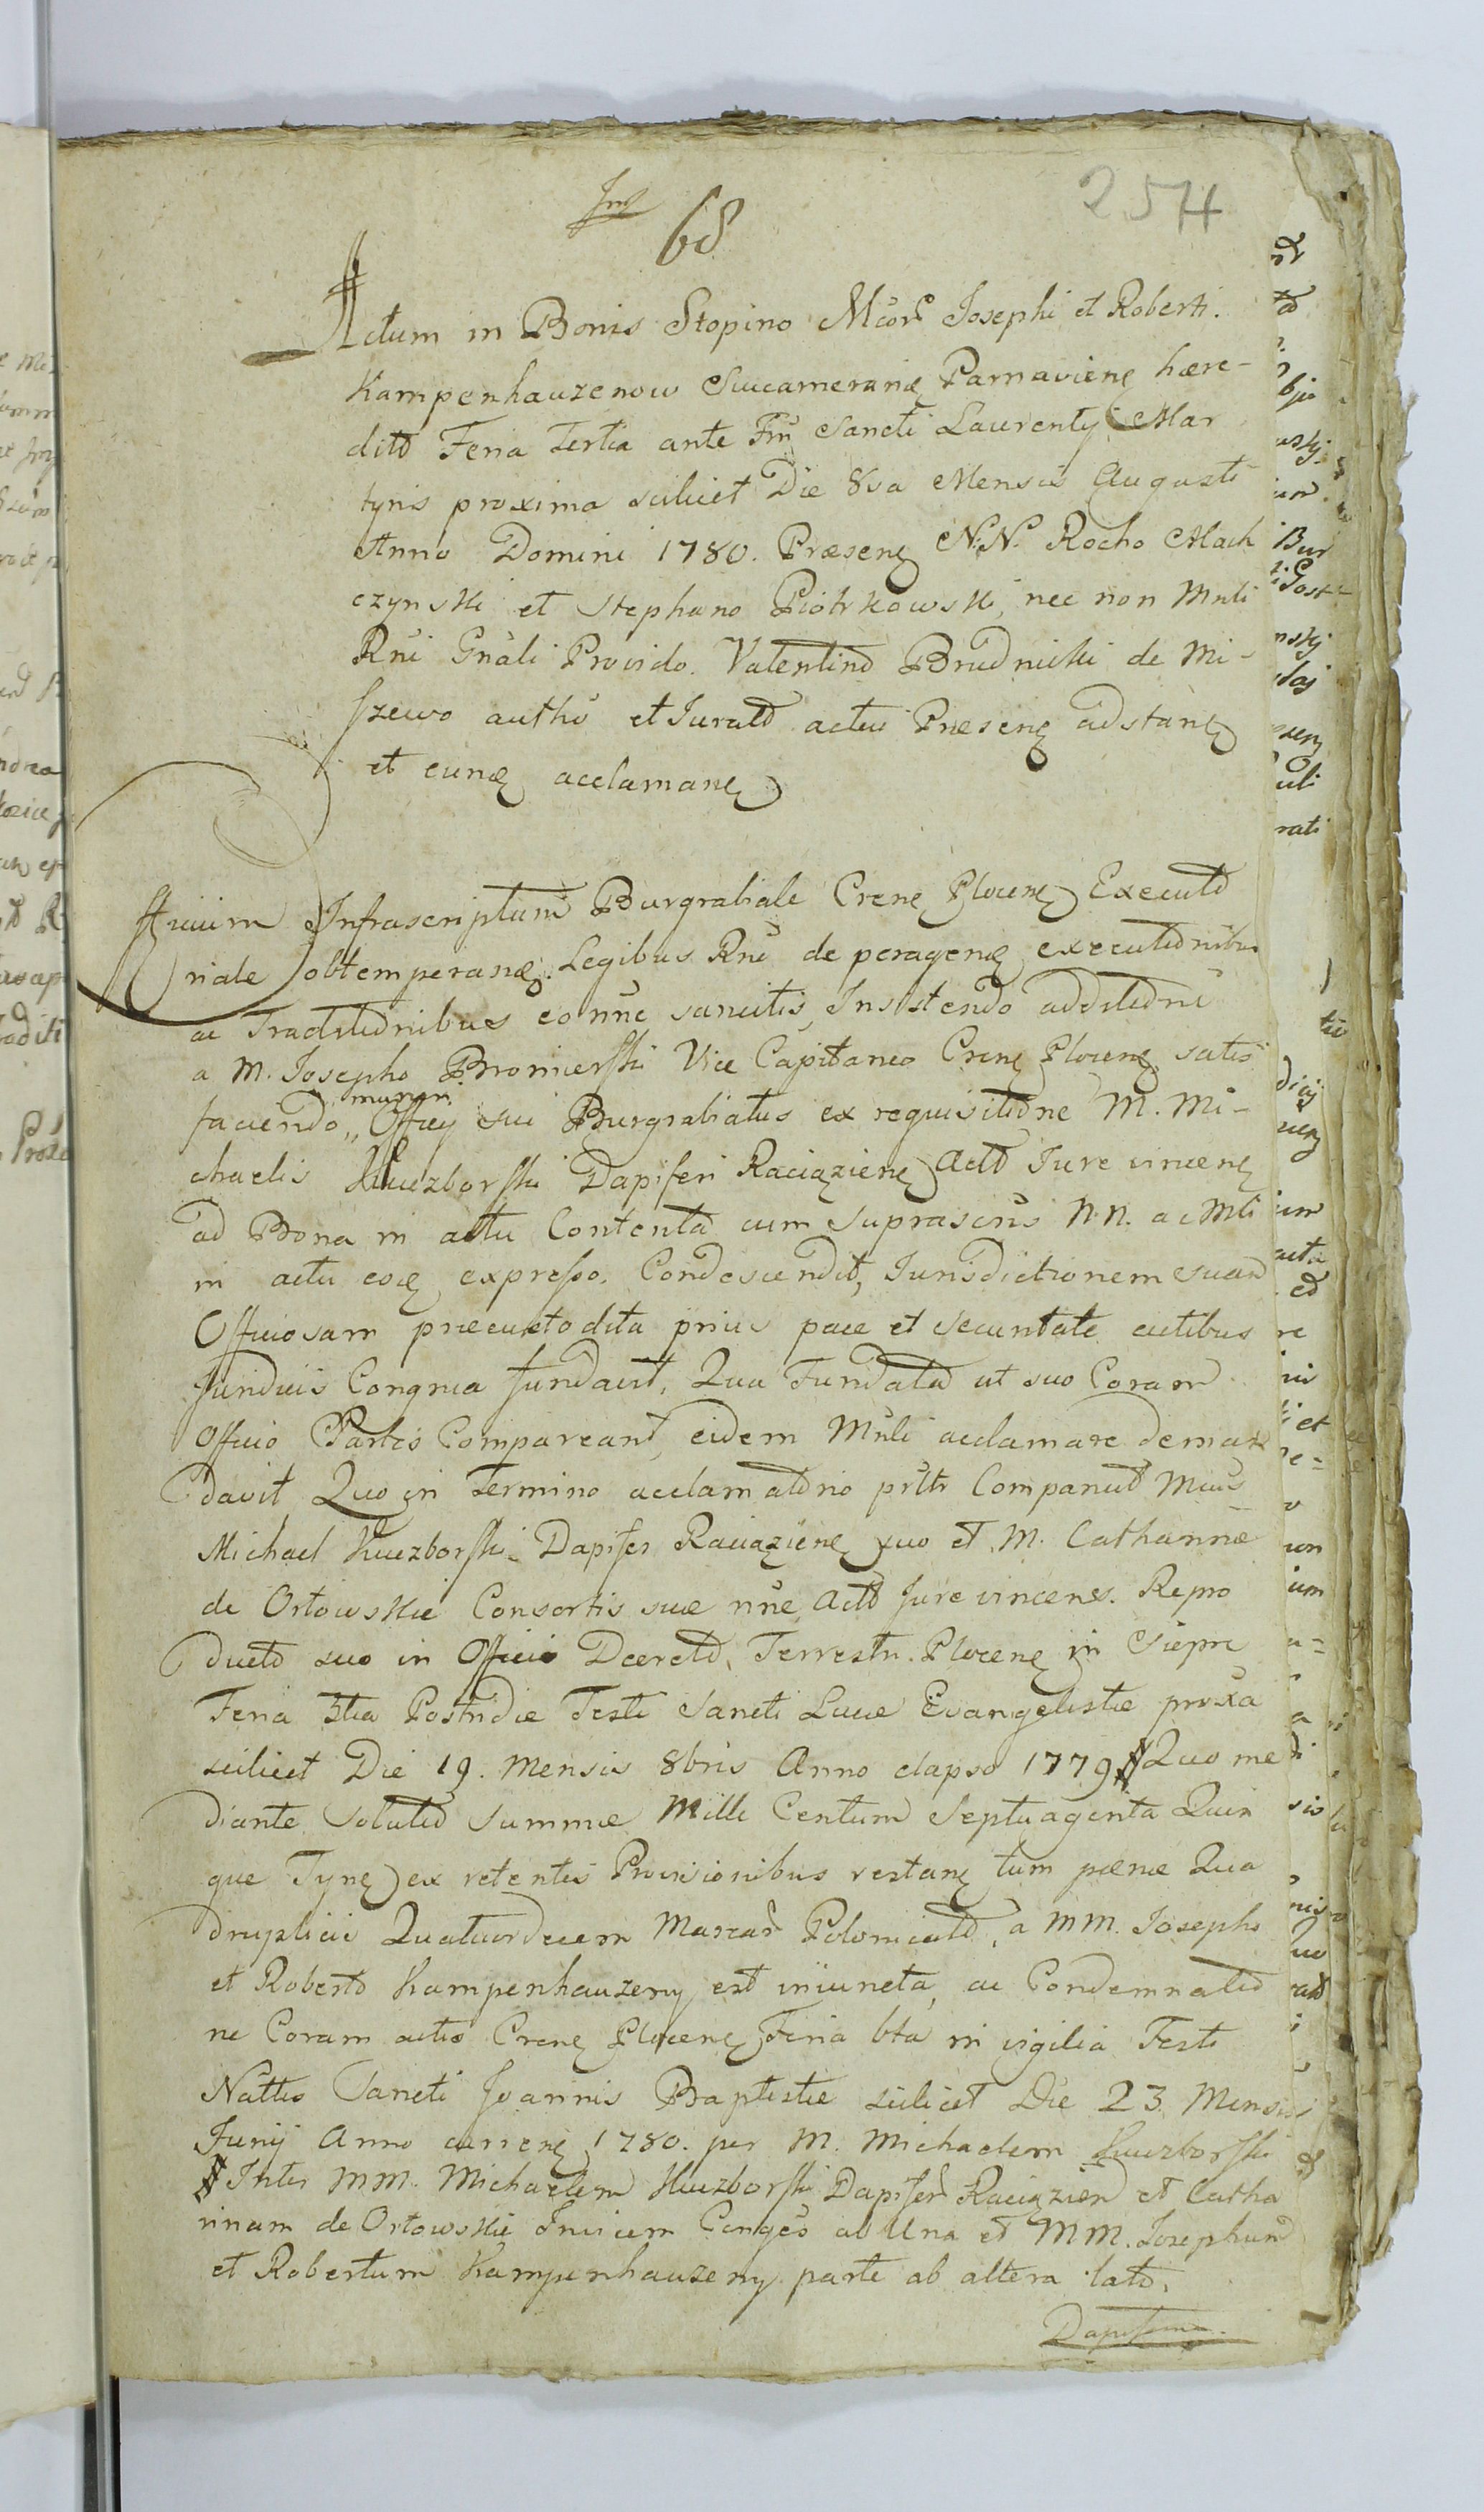 254
68
Actum in Bonis Stopino Mcor Josephi et Roberti.
Kampenhauzenow Succameranę Parnavienę hære-
ditō Feria Tertia ante Fm Sancti Laurentij Mar
tyris proxima scilicet Die 8va Mensis Augusti
Anno Domini 1780. Præsenę N.N. Rocho Mach
czynski et Stephano Piotrkowski, nec non Mnli
Rni Gnali Provido Valentino Brudnicki de Mi-
szewo autho et Juratō actui Præsenę adstanę
et eunę acclamanę
Officium Infrascriptum Burgrabiale Crenę Plocenę Executō
riale obtemperanę Legibus Rni de peragenę executōnibus
ac Tradditōnibus eo nnc sancitis, Insistendo additōni
a M. Josepho Bromierski Vice Capitaneo Crenę Plocenę satis
faciendo „ muneri Officij sui Burgrabiatus ex requisitōne M. Mi-
chaelis Kuczborski Dapiferi Raciązienę Actō Jure vincenę
ad Bona in actu Contenta cum suprascris N.N. ac Mli
in actu eoę expresso. Condescendit, Jurisdictionem suam
Officiosam præcustodita prius pace et securitate actibus
Juridicis Congrua fundavit, Qua Fundata ut suo Coram
Officio Partes Compareant, eidem Mnli acclamare deman
davit Quo in Termino acclamatōrio prltr Comparuit Mcus
Michael Kuczborski Dapifer Raciązienę suo et M. Catharinæ
de Orłowskie Consortis suæ nne Actō Jure vincenę. Repro
ductō suo in Officio Decretō, Terrestri. Plocenę in Sieprc
Feria 3tia Postridie Festi Sancti Lucæ Evangelistæ proxa
scilicet Die 19. Mensis 8bris Anno elapso 1779 # Quo me
diante solutiō summæ Mille Centum Septuaginta Quin
que Tynę ex retentis Provisionibus restanę tum pænæ Qua
druplicis Quatuordecem Marcar Polonicatō, a MM. Josepho
et Robertō Kampenhauzeny est iniuncta, ac Condemnatiō
ne Coram actis Crenę Plocenę Feria 6ta in vigilia Festi
Nattis Sancti Joannis Baptistæ scilicet Die 23 Mensis
Junij Anno currenę 1780. per M. Michaelem Kuczborski
# Inter MM. Michaelem Kuczborski Dapifer Raciązien et Catha
rinam de Orłowskie Invicem Conges ab Una et MM. Josephum
et Robertum Kampenhauzeny parte ab altera latō.
Dapiferum